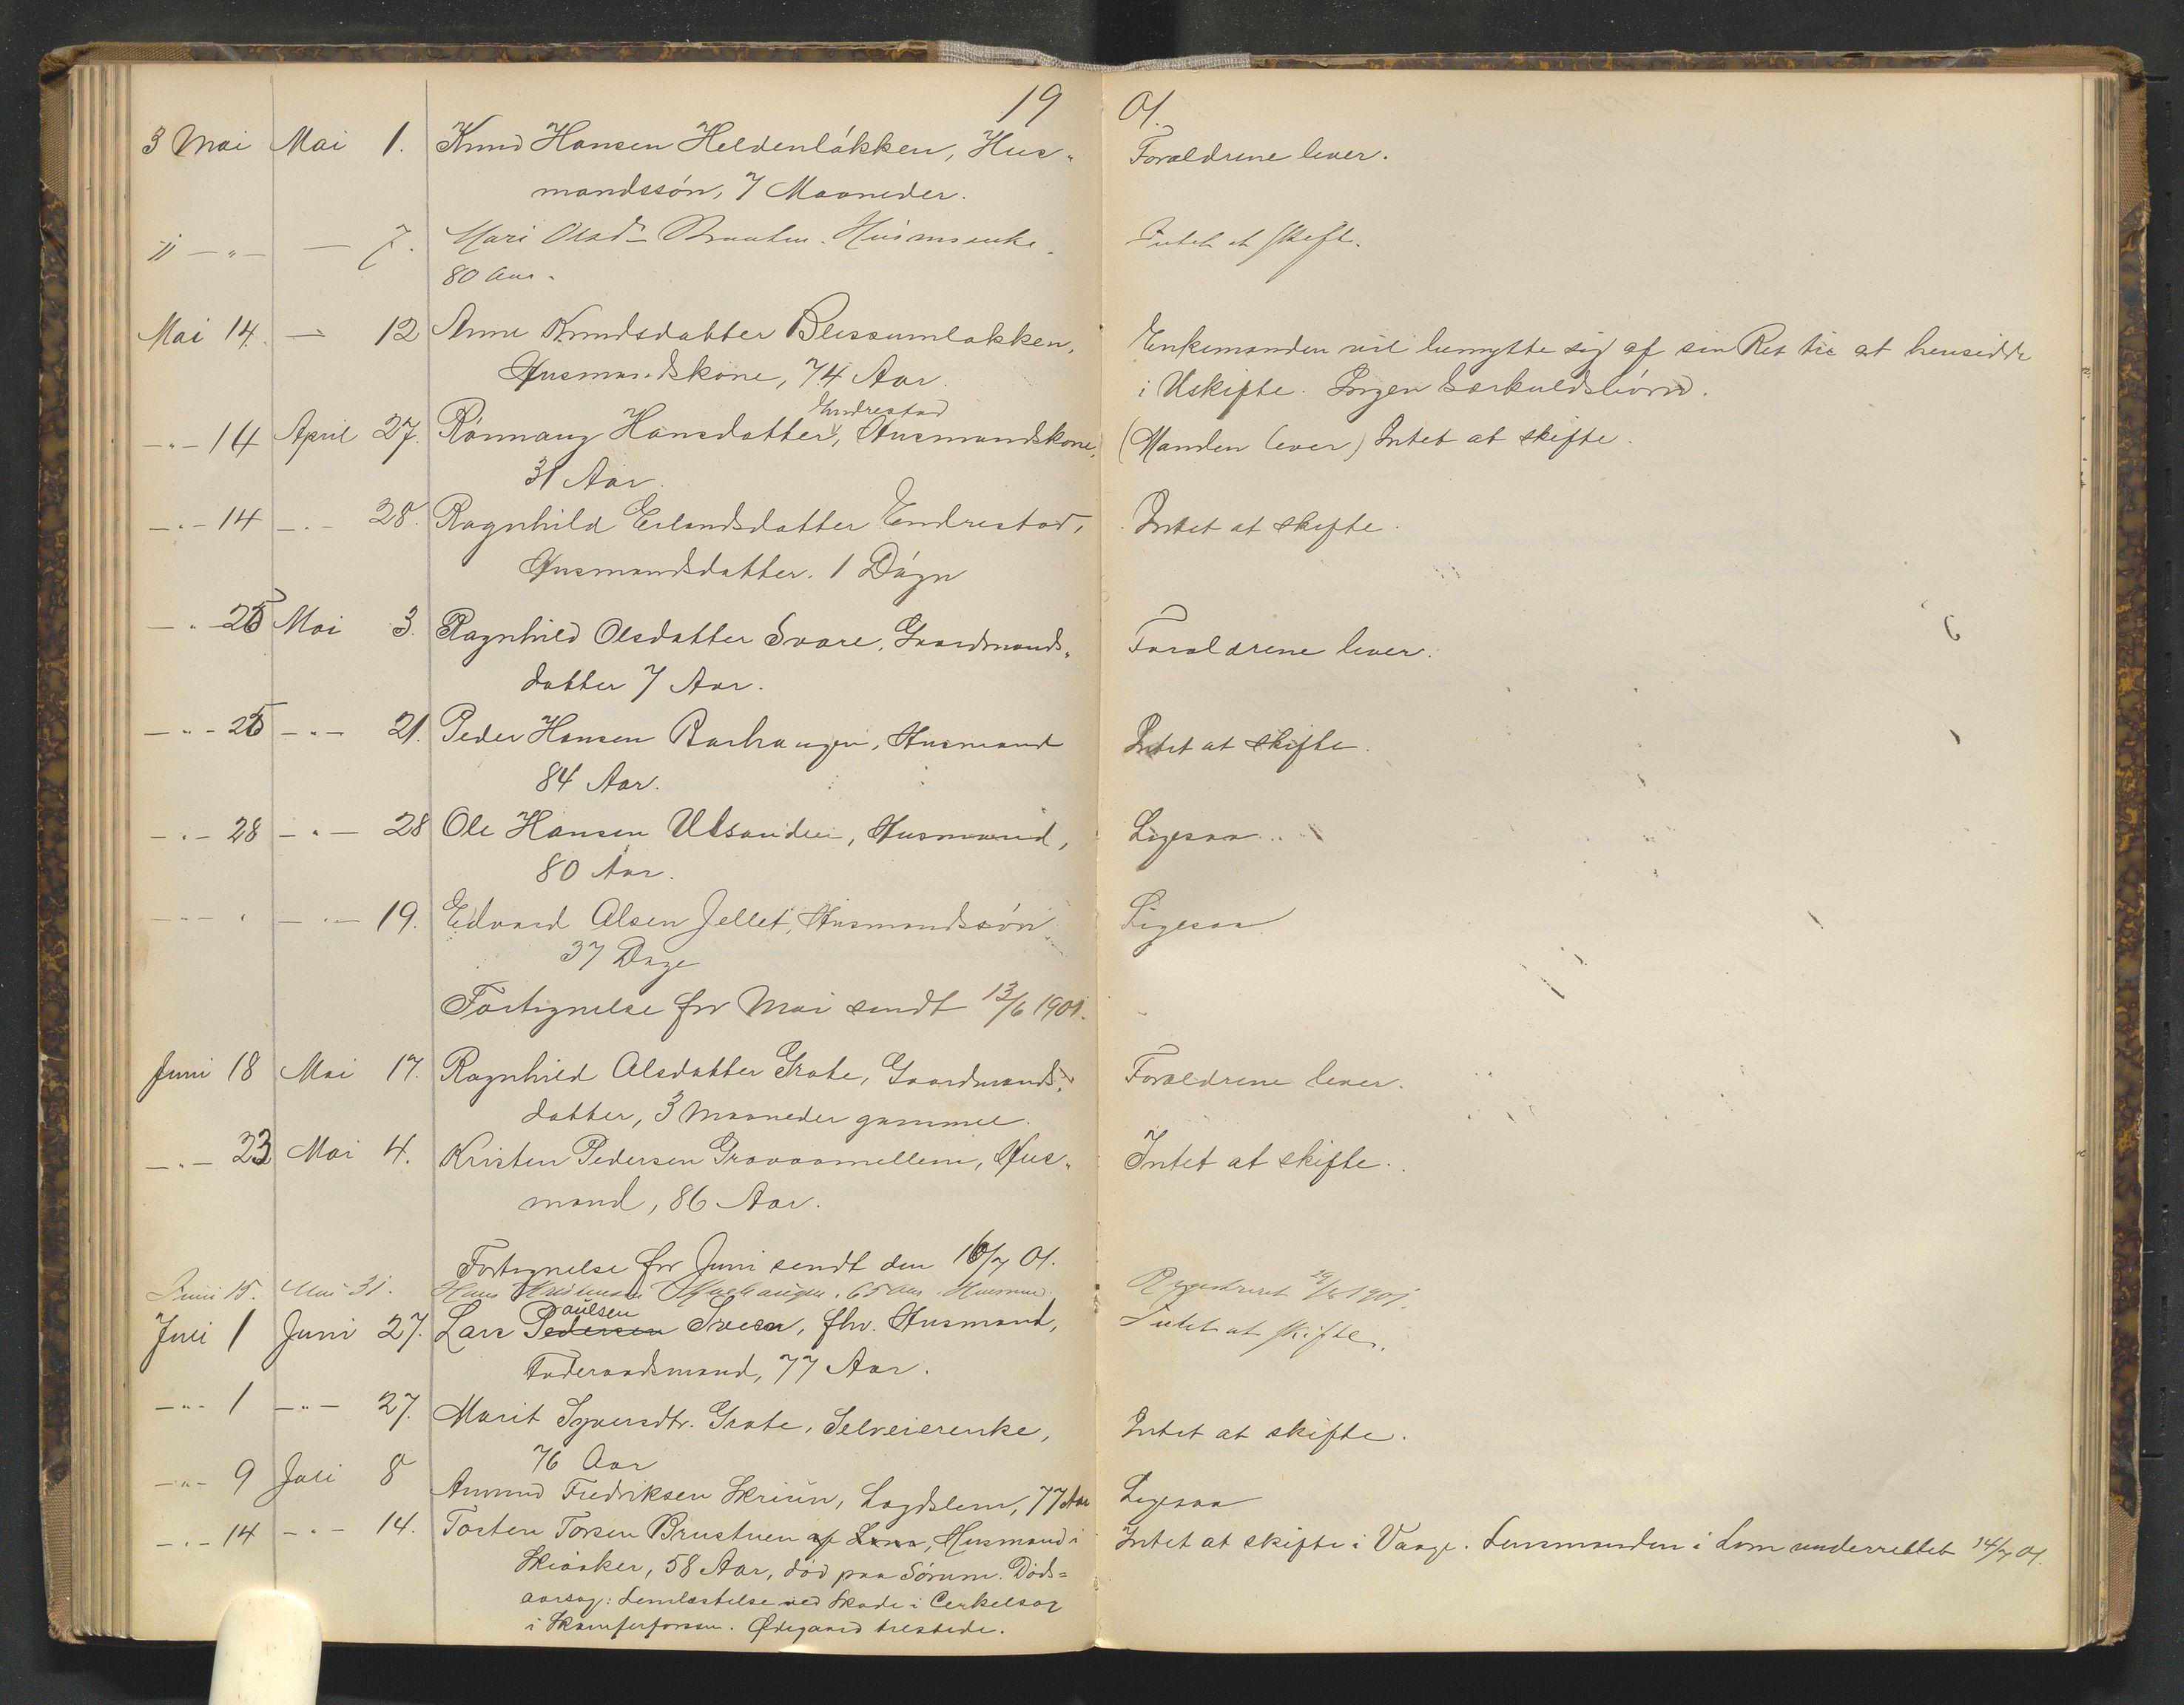 19 01.
3 Mai Mai 1. Knud Hansen Heldenløkken, Hus- Forældrene lever.
mandssøn, 7 Maaneder.
11 — " — — 7. Mari Olsdr Braaten. Husmsenke. Intet at skifte.
80 Aar.
Mai 14. — 12 Anne Knudsdatter Blessumløkken, Enkemanden vil benytte sig af sin Ret til at hensidde
Husmandskone, 74 Aar. i Uskifte. Ingen Særkuldsbørn.
Endrestad
— " — 14 April 27. Rønnaug Hansdatter, Husmandskone, (Manden lever) Intet at skifte.
31 Aar.
— " — 14 — " — 28. Ragnhild Erlandsdatter Endrestad, Intet at skifte.
Husmandsdatter. 1 Døgn
— " — 25 Mai 3. Ragnhild Olsdatter Svare, Gaardmands- Forældrene lever.
datter 7 Aar.
— " — 25 — " — 21. Peder Hansen, Husmand Intet at skifte.
84 Aar.
— " — 28 — " — 28 Ole Hansen Utsanden, Husmand, Ligesaa
80 Aar.
— " — — " — 19. Edvard Olsen Jellet, Husmandssøn Ligesaa
37 Dage
Fortegnelse for Mai sendt 13/6 1901.
Juni 18 Mai 17. Ragnhild Olsdatter Grote, Gaardmands- Forældrene lever.
datter, 3 Maaneder gammel.
— " — 23 Mai 4. Kristen Pedersen Gravaamellem, Hus- Intet at skifte.
mand, 86 Aar.
Fortegnelse for Juni sendt den 10/7 01.
Juni 15. Mai 31. Hans 65 Aar. Husmand. Registreret 29/6 1901.
aulsen
Juli 1 Juni 27. Lars Pedersen Sveen, fhv. Husmand, Intet at skifte.
Føderaadsmand, 77 Aar.
— " — 1 — " — 27. Marit Syversdtr. Grote, Selveierenke, Intet at skifte.
76 Aar
— " — 9 Juli 8 Amund Fredriksen Skriun, Lægdslem, 77 Aar Ligesaa
— " — 14 — " — 14. Torsten Torsen Brustuen af Lom, Husmand i Intet at skifte i Vaage. Lensmanden i Lom underrettet 14/7 01.
Skiaaker, 58 Aar, død paa Sørum. Døds-
aarsag: Lemlæstelse ved Skade i Cirkelsag
i Skamferfossen. Ødegaard tilstede.